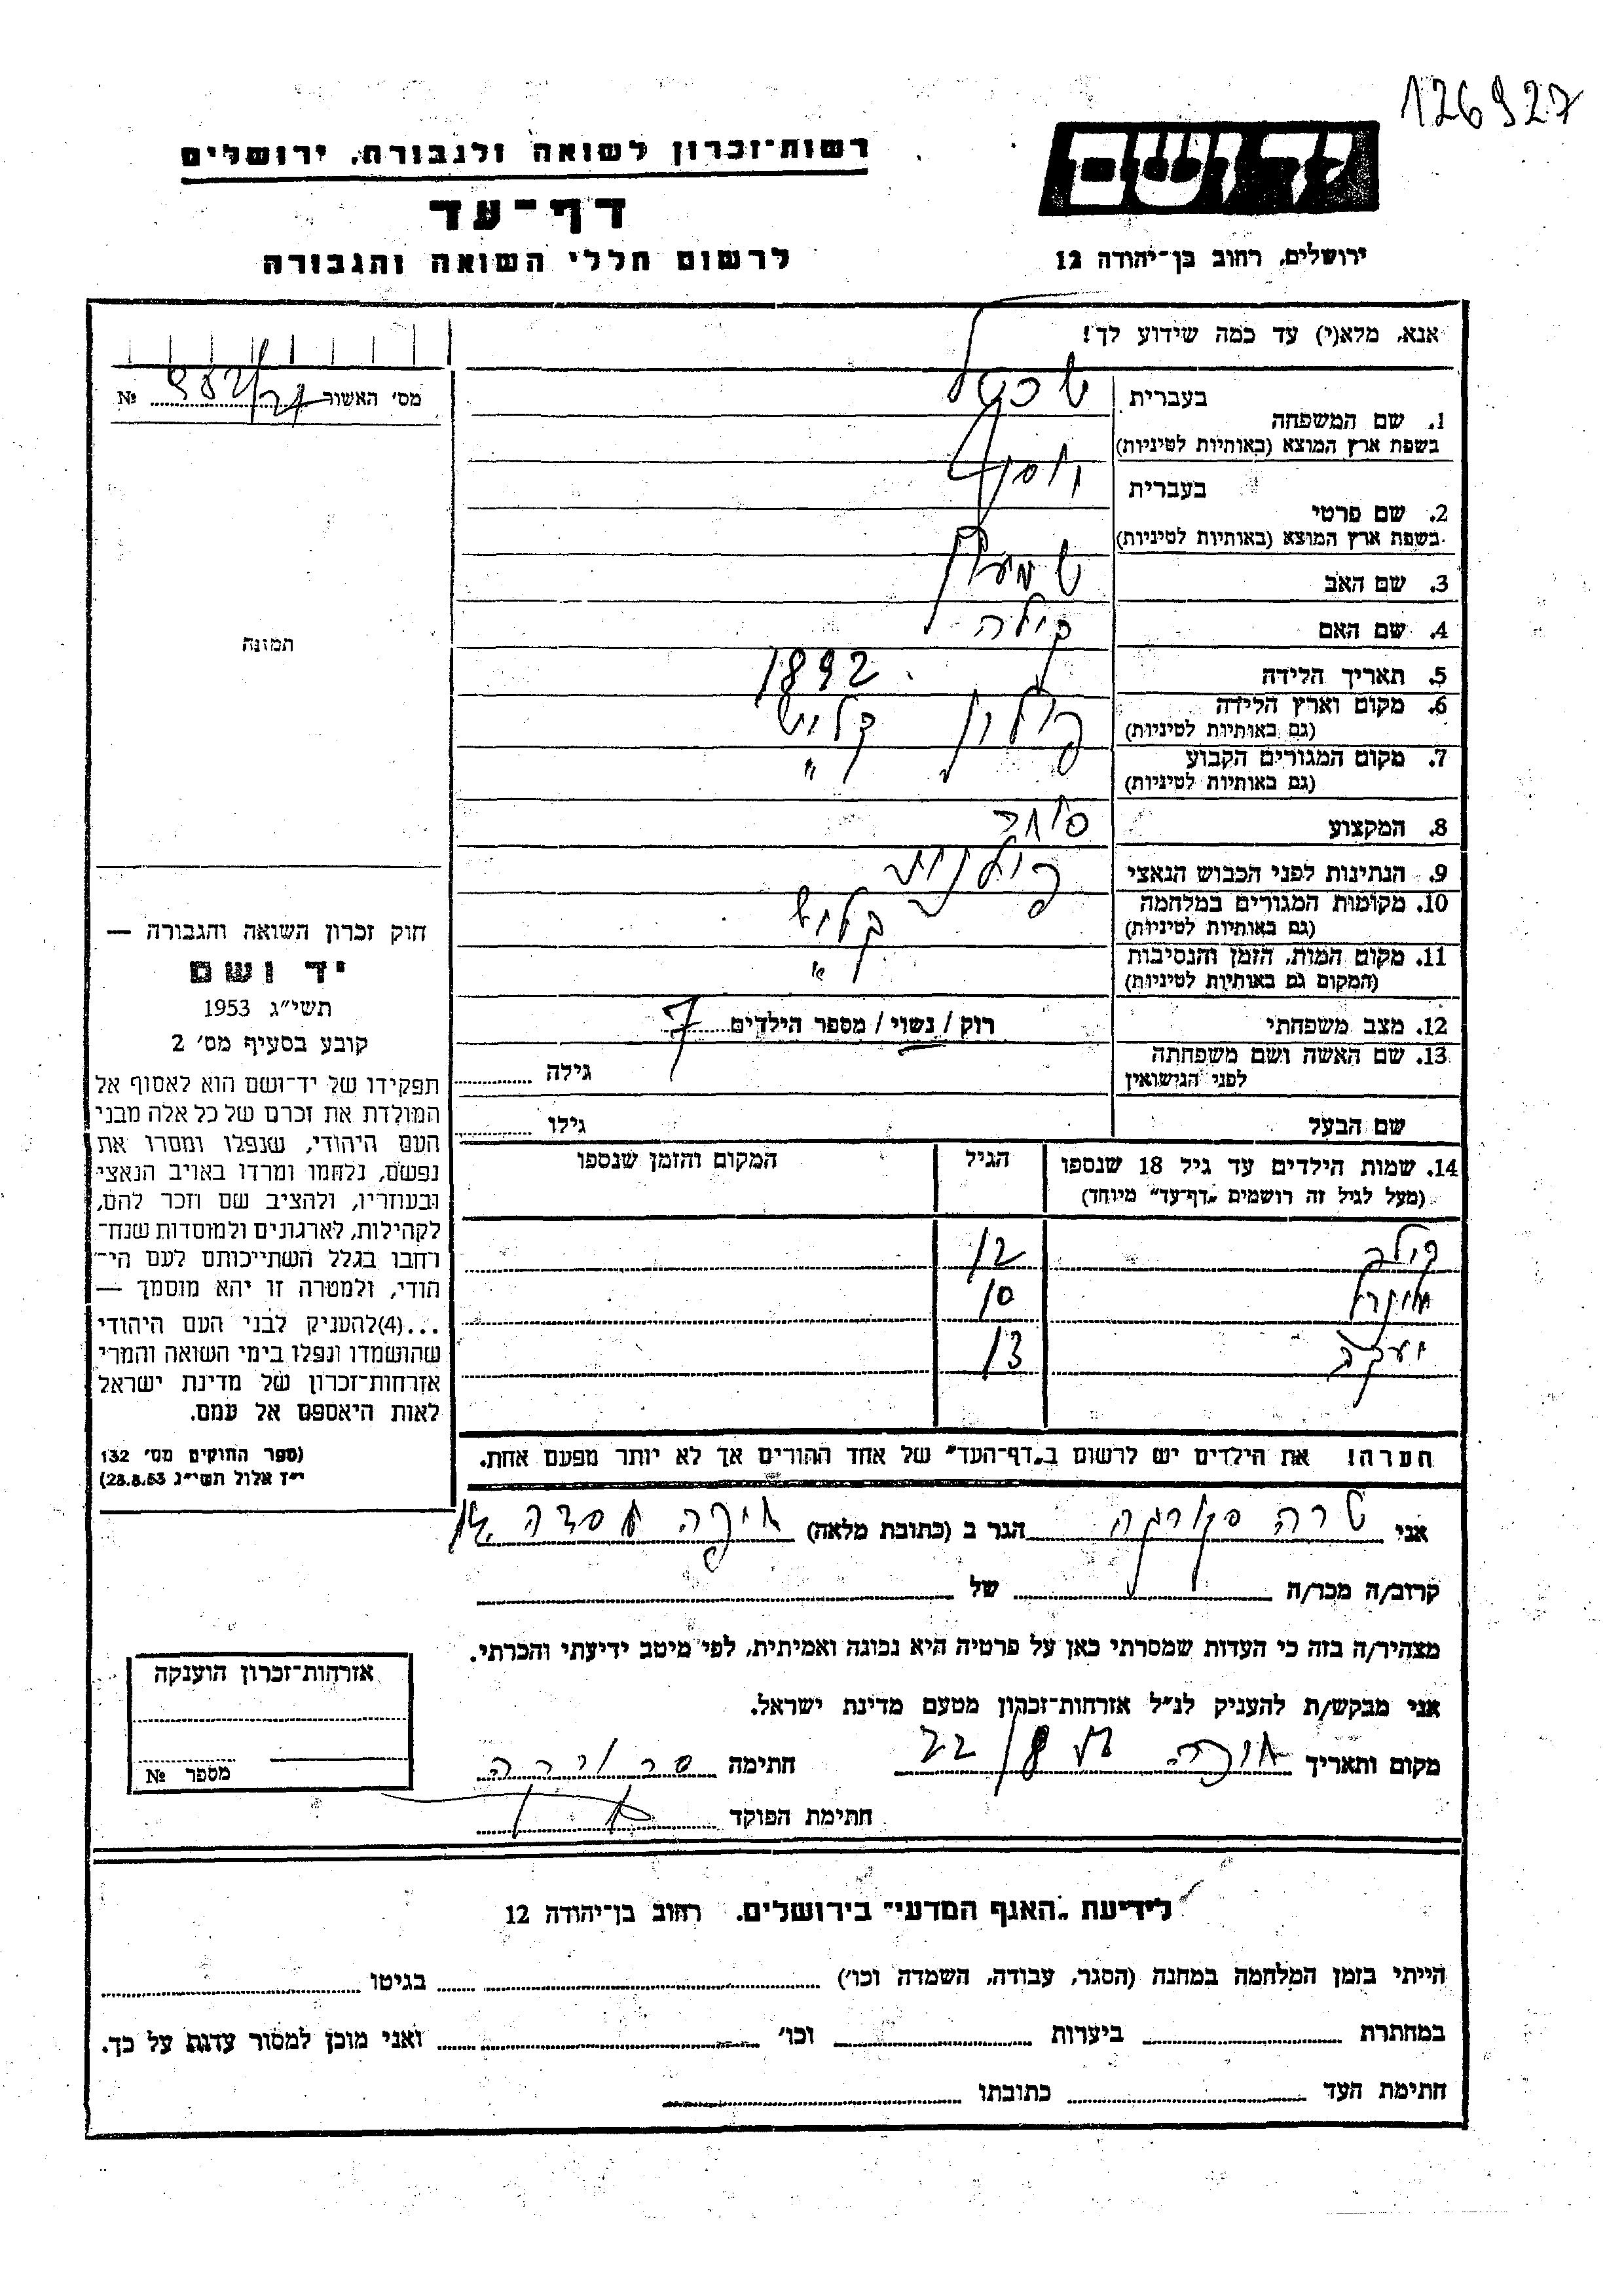 126927
יד ושם
ירושלים, רחוב בן־יהודה 12
רשות־זכרון לשואה ולגבורה, ירושלים
דף־עד
לרשום חללי השואה והגבורה
אנא, מלא(י) עד כמה שידוע לך!
מס׳ האשור № 982/21
תמונה
1. שם המשפחה
בעברית
בשפת ארץ המוצא (באותיות לטיניות)
2. שם פרטי
בעברית יוסף
בשפת ארץ המוצא (באותיות לטיניות)
3. שם האב שמעון
4. שם האם קילה
5. תאריך הלידה 1892
6. מקום וארץ הלידה פולין קליש
(גם באותיות לטיניות)
7. מקום המגורים הקבוע "
(גם באותיות לטיניות)
8. המקצוע סוחר
9. הנתינות לפני הכבוש הנאצי פולנית
10. מקומות המגורים במלחמה קליש
(גם באותיות לטיניות)
11. מקום המות, הזמן והנסיבות "
(המקום גם באותיות לטיניות)
12. מצב משפחתי רוק / נשוי / מספר הילדים 7
13. שם האשה ושם משפחתה
לפני הנישואין
גילה
שם הבעל גילו
14. שמות הילדים עד גיל 18 שנספו
(מעל לגיל זה רושמים „דף־עד״ מיוחד)
הגיל
המקום והזמן שנספו
קילה 12
10
יעקב 13
הערה! את הילדים יש לרשום ב„דף־העד״ של אחד ההורים אך לא יותר מפעם אחת.
חוק זכרון השואה והגבורה —
יד ושם
תשי״ג 1953
קובע בסעיף מס׳ 2
תפקידו של יד־ושם הוא לאסוף אל
המולדת את זכרם של כל אלה מבני
העם היהודי, שנפלו ומסרו את
נפשם, נלחמו ומרדו באויב הנאצי
ובעוזריו, ולהציב שם וזכר להם,
לקהילות, לארגונים ולמוסדות שנח־
רחבו בגלל השתייכותם לעם הי־
הודי, ולמטרה זו יהא מוסמך —
...(4)להעניק לבני העם היהודי
שהושמדו ונפלו בימי השואה והמרי
אזרחות־זכרון של מדינת ישראל
לאות היאספם אל עמם.
(ספר החוקים מס׳ 132
י״ז אלול תשי״ג 28.8.53)
אני שרה הגר ב (כתובת מלאה) חיפה
קרוב/ה מכר/ה של
מצהיר/ה בזה כי העדות שמסרתי כאן על פרטיה היא נכונה ואמיתית, לפי מיטב ידיעתי והכרתי.
אני מבקש/ת להעניק לנ״ל אזרחות־זכרון מטעם מדינת ישראל.
מקום ותאריך חיפה 22/8 חתימה
חתימת הפוקד
אזרחות־זכרון הוענקה
מספר №
לידיעת „האגף המדעי״ בירושלים, רחוב בן־יהודה 12
הייתי בזמן המלחמה במחנה (הסגר, עבודה, השמדה וכו׳) בגיטו
במחתרת ביערות וכו׳ ואני מוכן למסור עדות על כך.
חתימת העד כתובתו